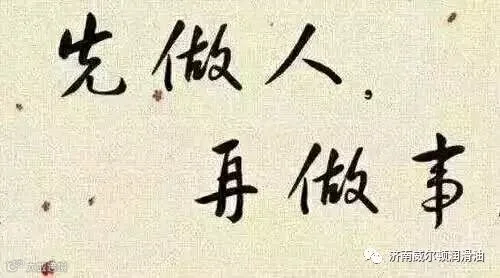 先做人，
再做事
济南威尔顿润滑油